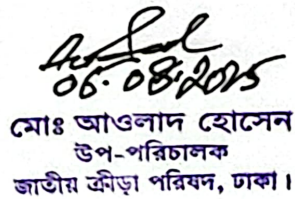 06.08.2025
মোঃ আওলাদ হোসেন
উপ-পরিচালক
জাতীয় ক্রীড়া পরিষদ, ঢাকা।